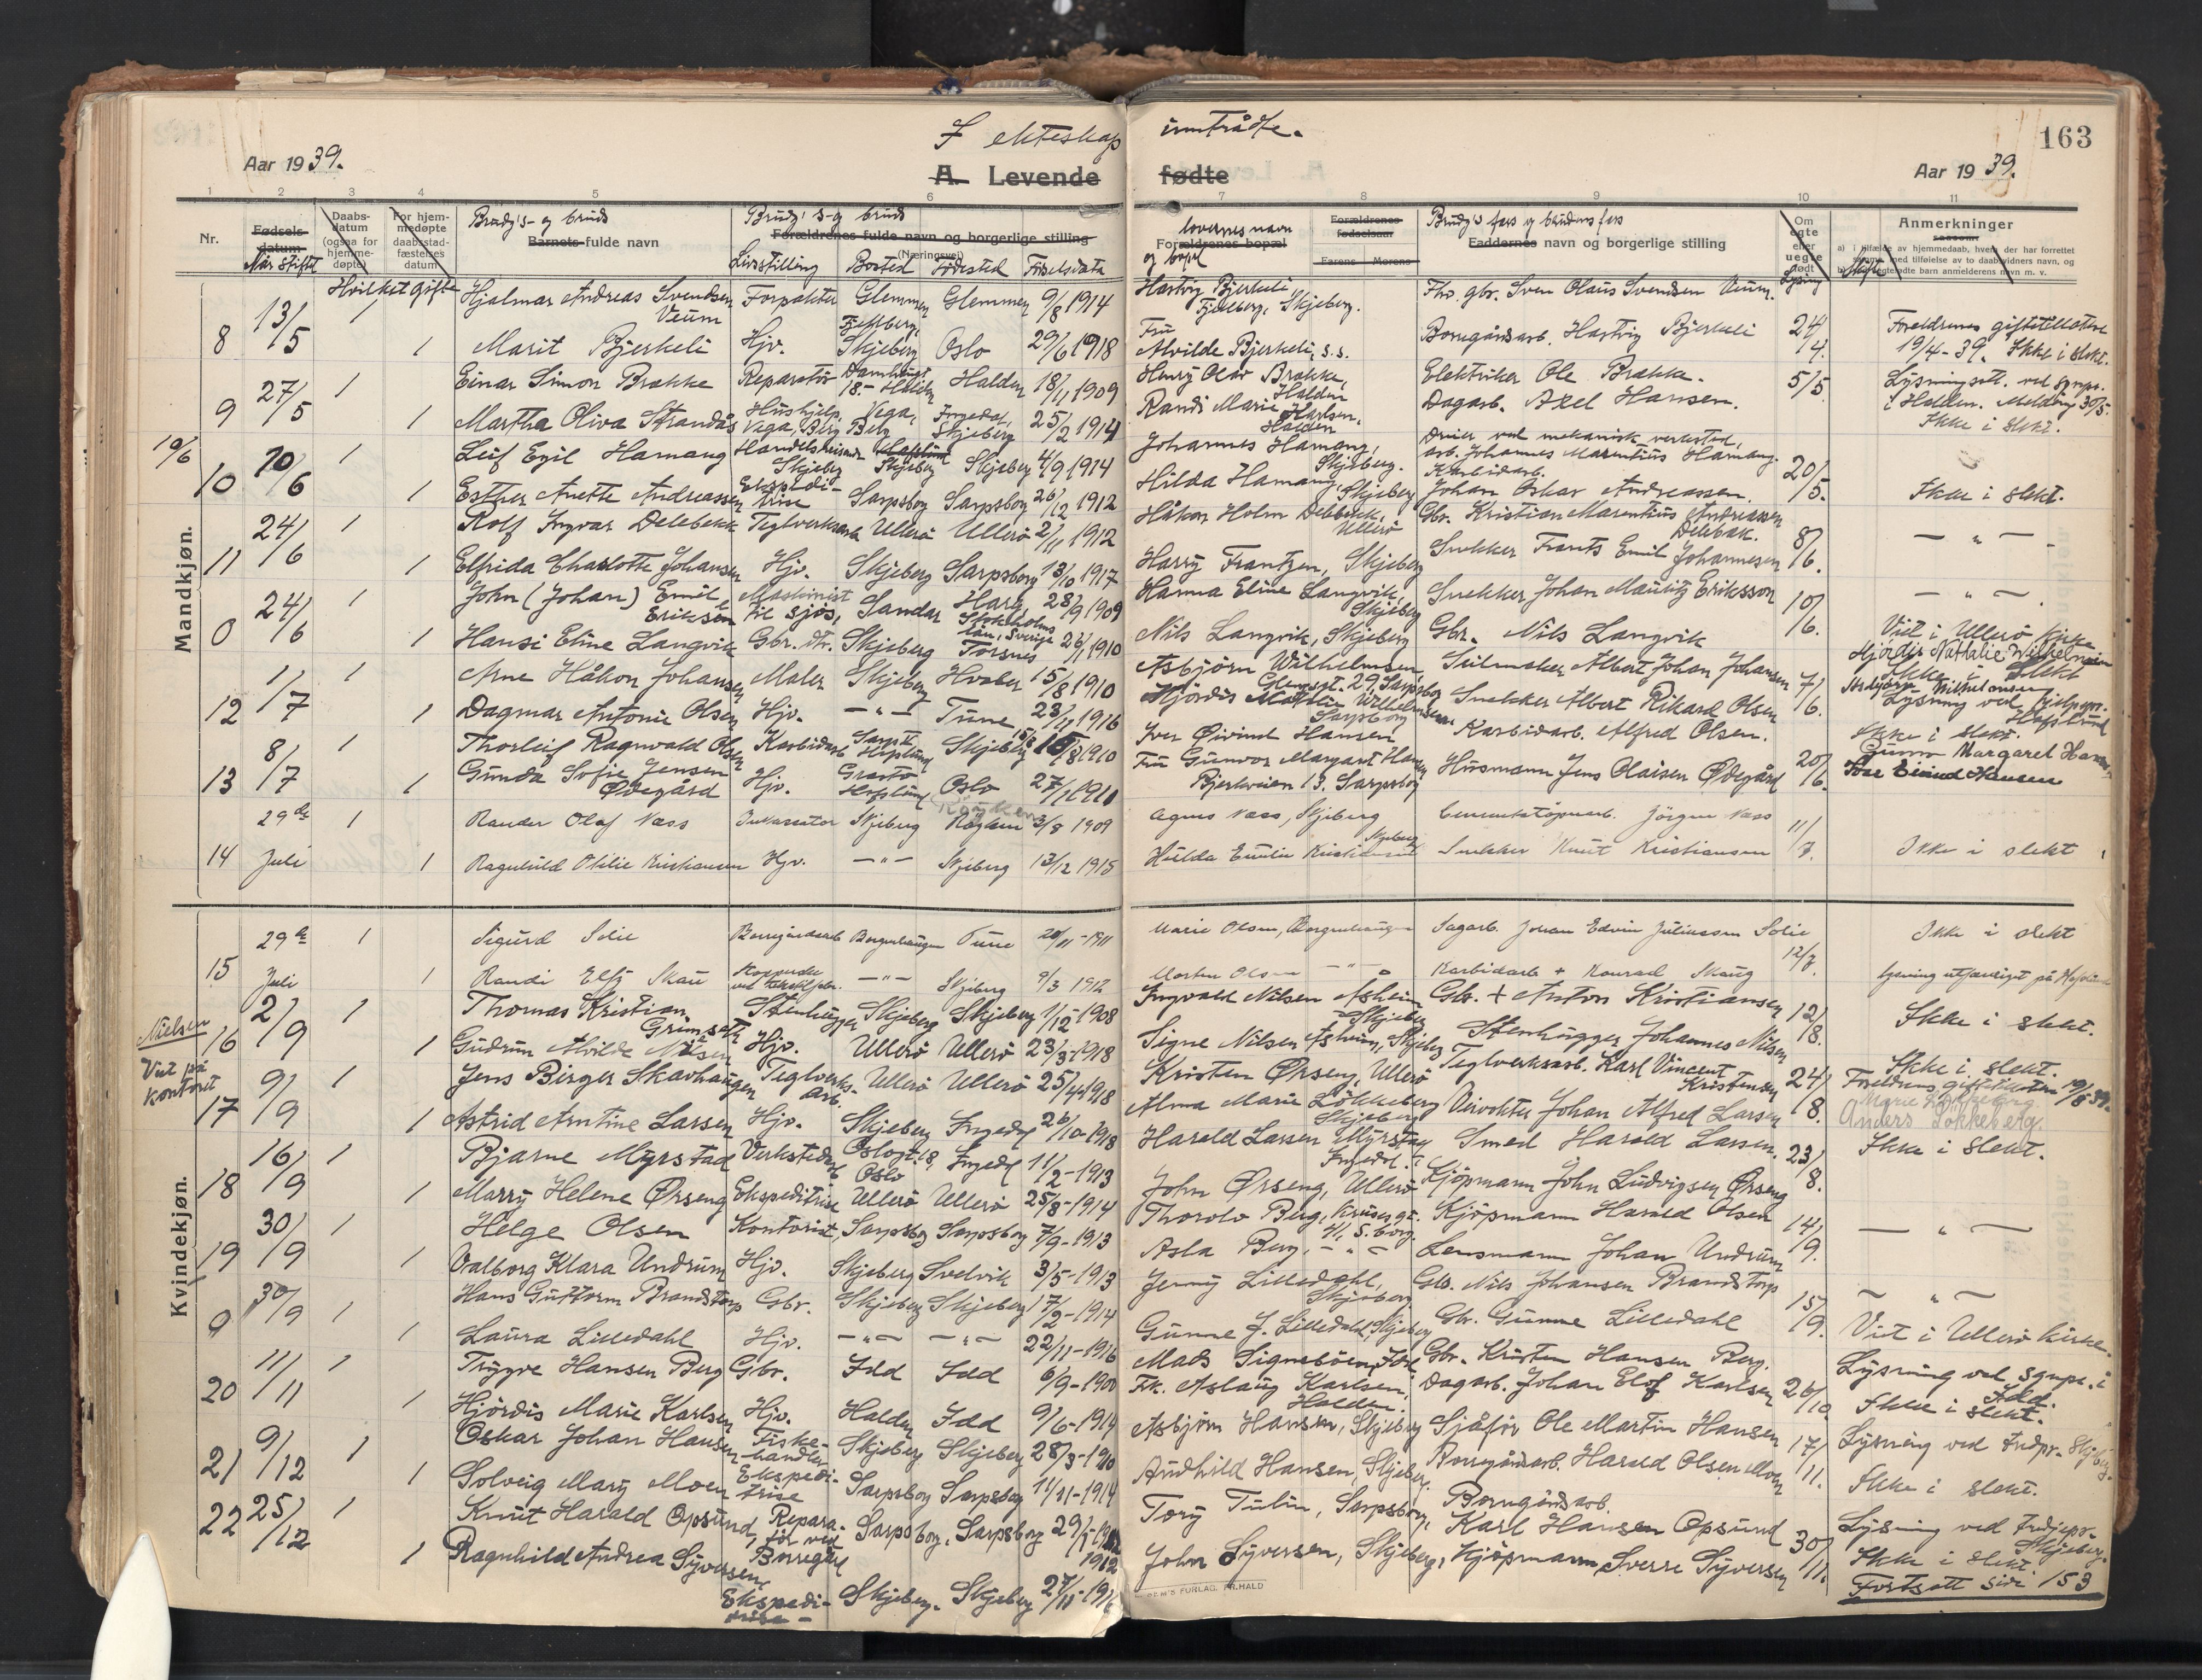 I ekteskap inntrådte.
163
Aar 1939.
A. Levende fødte
Aar 1939.
1 2 3 4 5 6 7 8 9 10 11
Nr.
Fødsels-datum
Når stiftet
Daabs-datum (ogsaa for hjemme-døpte)
For hjem-medøpte daabsstad-fæstelses datum
Hvilket gifte
Brudg's- og bruds
Barnets fulde navn
Brudg's- og bruds
Forældrenes fulde navn og borgerlige stilling
(Næringsvei)
Livsstilling Bosted Fødested Fødselsdata
loverness navn
Forældrenes bopæl
og bopel
Forældrenes fødselsaar
Farens Morens
Brudg's fars og brudens fars
Faddernes navn og borgerlige stilling
Om egte eller uegte født
Lysning
Anmerkninger
saasom:
Mandkjøn.
8 13/5 1 Hjalmar Andreas Svendsen Veum Forpakter Glemmen Glemmen 9/8 1914 Hartvig Bjerkeli, Fjellberg, Skjeberg. Fhv. gbr. Sven Olaus Svendsen Veum. 24/4. Foreldrenes giftetillatelse
1 Marit Bjerkeli Hjv. Fjellberg, Skjeberg Oslo 29/6 1918 Fru Alvilde Bjerkeli, s.s. Borregårdsarb. Hartvig Bjerkeli 19/4-39. Ikke i slekt.
9 27/5 1 Einar Simon Brække Reparatør Halden 18/11 1909 Henry Olav Brække, Halden Elektriker Ole Brække. 5/5. Lysningsatt. ved sognepr.
1 Martha Oliva Strandås Hushjelp, Vaga, Berg Vega, Berg Ingedal, Skjeberg 25/2 1914 Randi Marie Karlsen, Halden Dagarb. Axel Hansen. i Halden. Melding 30/5. Ikke i slekt.
10/6
10 10/6 1 Leif Egil Hamang Handelsreisende Skjeberg Skjeberg Skjeberg 4/9 1914 Johannes Hamang, Skjeberg. Dreier ved mekanisk verksted, arb. Johannes Marentius Hamang. 20/5.
1 Esther Anette Andreassen Ekspeditrise Sarpsborg Sarpsborg 26/12 1912 Hilda Hamang, Skjeberg Karbidarb. Johan Oskar Andreassen. Ikke i slekt.
11 24/6 1 Rolf Ingvar Delebekk Teglverksarb. Ullerö Ullerö 2/11 1912 Håkon Holm Delebekk, Ullerö Gbr. Kristian Marentius Andreassen Delebæk. 8/6. — " —
1 Elfrida Charlotte Johansen Hjv. Skjeberg Sarpsborg 13/10 1917 Harry Frantzen, Skjeberg Snekker Frants Emil Johannesen
0 24/6 1 John (Johan) Emil Eriksen Maskinist til sjøs, Sandar Harg, Stokholms län, Sverige 28/9 1909 Hanna Eline Langvik, Skjeberg Snekker, Johan Mauritz Eriksson 10/6. — " —
1 Hansi Eline Langvik Gbr. dtr. Skjeberg Torsnes 26/1 1910 Nils Langvik, Skjeberg Gbr. Nils Langvik Viet i Ullerö kirke
12 1/7 1 Arne Håkon Johansen Maler Skjeberg Hvaler 15/8 1910 Asbjörn Wilhelmsen, Glengst. 29 Sarpsborg Seilmaker Albert Johan Johansen 7/6. Hjördis Nathalie Wilhelmsen Ikke i slekt
1 Dagmar Antonie Olsen Hjv. — " — Tune 23/11 1916 Hjördis Wilhelmsen Sarpsborg Snekker Albert Rikard Olsen Asbjörn Wilhelmsen Lysning ved hjelpepr. Hafslund
13 8/7 1 Thorleif Ragnvald Olsen Karbidarb. Skjeberg 15/8 1910 Iver Øivind Hansen Karbidarb. Alfred Olsen. 20/6. Ikke i slekt.
1 Gunda Sofie Jensen Ødegård Hjv. Hafslund Oslo 27/1 1911 Fru Gunvor Margaret Hansen Bjerkveien 13. Sarpsborg Husmann Jens Olaisen Ødegård Gunvor Margaret Hansen Ivar Eivind Hansen
14 29de Juli 1 Rander Olaf Næss Inkassator Skjeberg Röyken 3/8 1909 Agnes Næss, Skjeberg Cementstöperarb. Jörgen Næss 11/7.
1 Ragnhild Otilie Kristiansen Hjv. — " — Skjeberg 13/12 1915 Hulda Emilie Kristiansen Skjeberg Snekker Knut Kristiansen Ikke i slekt
Kvindekjøn.
15 29de Juli 1 Sigurd Solie Borregårdsarb. Borgenhaugen Tune 20/11-1911 Marie Olsen, Borgenhaugen Sagarb. Johan Edvin Juliussen Solie 12/7. Ikke i slekt
1 Randi Elfy Skau — " — Skjeberg 9/3 1912 Morten Olsen — " — Karbidarb + Konrad Skaug lysning utfærdiget på Hafslund
Nielsen
16 2/9 1 Thomas Kristian Grimseth Stenhugger Skjeberg Skjeberg 1/12-1908 Ingvald Nilsen Åsheim Skjeberg Gbr. + Anton Kristiansen 12/8. Ikke i slekt.
1 Gudrun Alvilde Nilsen Hjv. Ullerö Ullerö 23/3-1918 Signe Nilsen Åsheim, Skjeberg Stenhugger Johannes Nilsen
Viet på kontoret
17 9/9 1 Jens Birger Skavhaugen Teglverks-arb. Ullerö Ullerö 25/4-1918 Kristen Ørseng, Ullerö Teglverksarb. Karl Vincent Kristensen 24/8. Ikke i slekt. Foreldrenes giftetillatelse 19/8-39.
1 Astrid Arntine Larsen Hjv. Skjeberg Ingedal 26/10-1918 Alma Marie Lökkeberg Skjeberg Veivokter Johan Alfred Larsen Marie Lökkeberg Anders Lökkeberg.
18 16/9 1 Bjarne Myrstad Verkstedarb. Oslo Ingedal 11/2-1913 Harald Larsen Myrstad Ingedal Smed Harald Larsen. 23/8. Ikke i slekt.
1 Marry Helene Ørseng Ekspeditrise Ullerö Ullerö 25/8-1914 John Ørseng, Ullerö Kjöpmann John Ludvigsen Ørseng
19 30/9 1 Helge Olsen Kontorist, Sarpsborg Sarpsborg 7/9-1913 Thorolv Berg, Krusesgt. 41, S.borg. Kjöpmann Harald Olsen 14/9. — " —
1 Valborg Klara Undrum Hjv. Skjeberg Svelvik 3/5-1913 Asla Berg, — " — Lensmann Johan Undrum
9 30/9 1 Hans Guttorm Brandstorp Gbr. Skjeberg Skjeberg 17/2-1914 Jenny Lilledahl, Skjeberg Gbr. Nils Johansen Brandstorp 15/9. — " —
1 Laura Lilledahl Hjv. — " — — " — 22/11-1916 Gunne J. Lilledahl, Skjeberg Gbr. Gunne Lilledahl Viet i Ullerö kirke.
20 11/11 1 Trygve Hansen Berg Gbr. Idd Idd 6/9-1900 Mads Signebøen, Idd Gbr. Kristen Hansen Berg. 26/10. Lysning ved sognepr. i Idd.
1 Hjördis Marie Karlsen Hjv. Halden Idd 9/6-1914 Frk. Aslaug Karlsen, Halden. Dagarb. Johan Elof Karlsen Ikke i slekt.
21 9/12 1 Oskar Johan Hansen Fiske-handler Skjeberg Skjeberg 28/3-1910 Asbjörn Hansen, Skjeberg Sjåför Ole Martin Hansen 17/11. Lysning ved sndpr. Skjeberg.
1 Solveig Mary Moen Ekspedi-trise Sarpsborg Sarpsborg 11/11-1914 Audhild Hansen, Skjeberg. Borregårdsarb. Harald Olsen Moen Ikke i slekt.
22 25/12 1 Knut Harald Opsund Repara-tör ved Borregård Sarpsborg. Sarpsborg 1912 Tory Tulin, Sarpsborg, Borregårdsarb. Karl Hansen Opsund 30/11. Lysning ved Skjeberg.
1 Ragnhild Andrea Syversen Ekspedi-trise - Skjeberg. Skjeberg 27/11-1916 John Syversen, Skjeberg, Kjöpmann Sverre Syversen Ikke i slekt.
Fortsatt side 153
FORLAG, FR.HALD